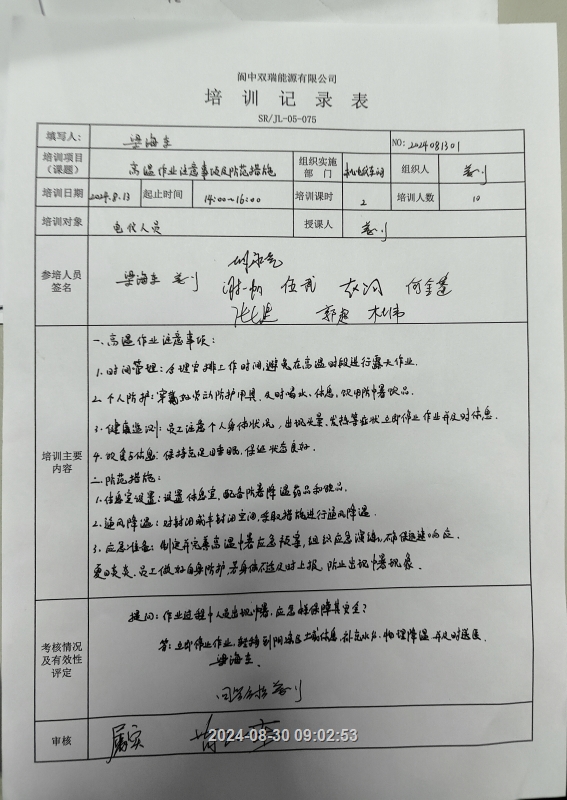 阆中双瑞能源有限公司
培 训 记 录 表
SR/JL-05-075
填写人： 梁海东 NO: 2024081301
培训项目（课题） 高温作业注意事项及防范措施 组织实施部 门 机电仪车间 组织人
培训日期 2024.8.13 起止时间 14:00~16:00 培训课时 2 培训人数 10
培训对象 电仪人员 授课人
参培人员签名
梁海东 谢一帆 伍武 何金蓬
郭超
培训主要内容
一.高温作业注意事项：
1.时间管理：合理安排工作时间,避免在高温时段进行露天作业.
2.个人防护：穿戴好劳动防护用具,及时喝水、休息,饮用防暑饮品.
3.健康监测：员工注意个人身体状况,出现头晕、发热等症状立即停止作业并及时休息.
4.改良休息：保持充足睡眠,保证状态良好.
二.防范措施：
1.休息室设置：设置休息室,配备防暑降温药品和饮品.
2.通风降温：对封闭或半封闭空间,采取措施进行通风降温.
3.应急准备：制定并完善高温中暑应急预案,组织应急演练,确保迅速响应.
夏日炎炎,员工做好自身防护,若身体不适及时上报,防止出现中暑现象.
考核情况及有效性评定
提问：作业过程中人员出现中暑,应怎样保障其安全？
答：立即停止作业,转移到阴凉区域休息,补充水分,物理降温并及时送医.
梁海东.
回答合格
审核 属实
2024-08-30 09:02:53